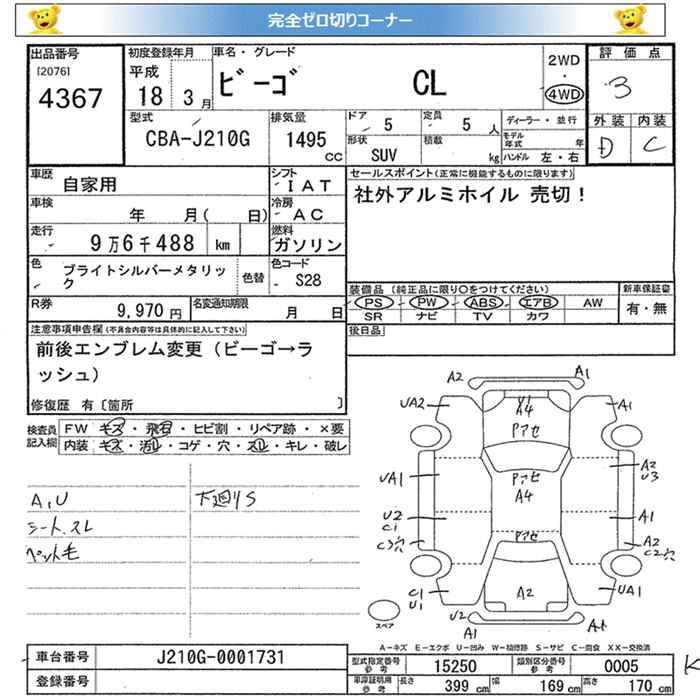 完全ゼロ切りコーナー
出品番号
[2076]
4367
初度登録年月
平成
18 3月
車名・グレード
ビーゴ CL
2WD
・
4WD
評価点
3
外装 内装
D C
型式
CBA-J210G
排気量
1495
cc
ドア
5
定員
5人
形状
SUV
積載
kg
ディーラー・並行
モデル年式 年
ハンドル 左・右
車歴
自家用
シフト
IAT
車検
年 月( 日)
冷房
AC
走行
9万6千488 km
燃料
ガソリン
色
ブライトシルバーメタリック
色替
色コード
S28
R券
9,970円
名変通知期限
月 日
セールスポイント(正常に機能するものに限ります)
社外アルミホイル 売切!
装備品(純正品に限り○をつけてください)
PS PW ABS エアB AW
SR ナビ TV カワ
新車保証書
有・無
後日品
注意事項申告欄(不具合内容等は具体的に記入して下さい)
前後エンブレム変更(ビーゴ→ラ
ッシュ)
修復歴 有〔箇所 〕
検査員記入欄
FW キズ・飛石・ヒビ割・リペア跡・×要
内装 キズ・汚れ・コゲ・穴・スレ・キレ・破レ
A,U
シート、スレ
ペット毛
下廻りS
A2 A1
UA2 U1 A4 A1
Pアセ
UA1 Pアセ A4 A2 U3
U2 C1 A1
C3穴 Pアセ A2 C2穴
C1 U1 A2 UA1
U2 A1
スペア
A1
A-キズ E-エクボ U-凹み W-補修跡 S-サビ C-腐食 XX-交換済
車台番号 J210G-0001731
登録番号
型式指定番号 参考 15250
類別区分番号 参考 0005
車庫証明用 参考 長さ 399cm 幅 169cm 高さ 170cm